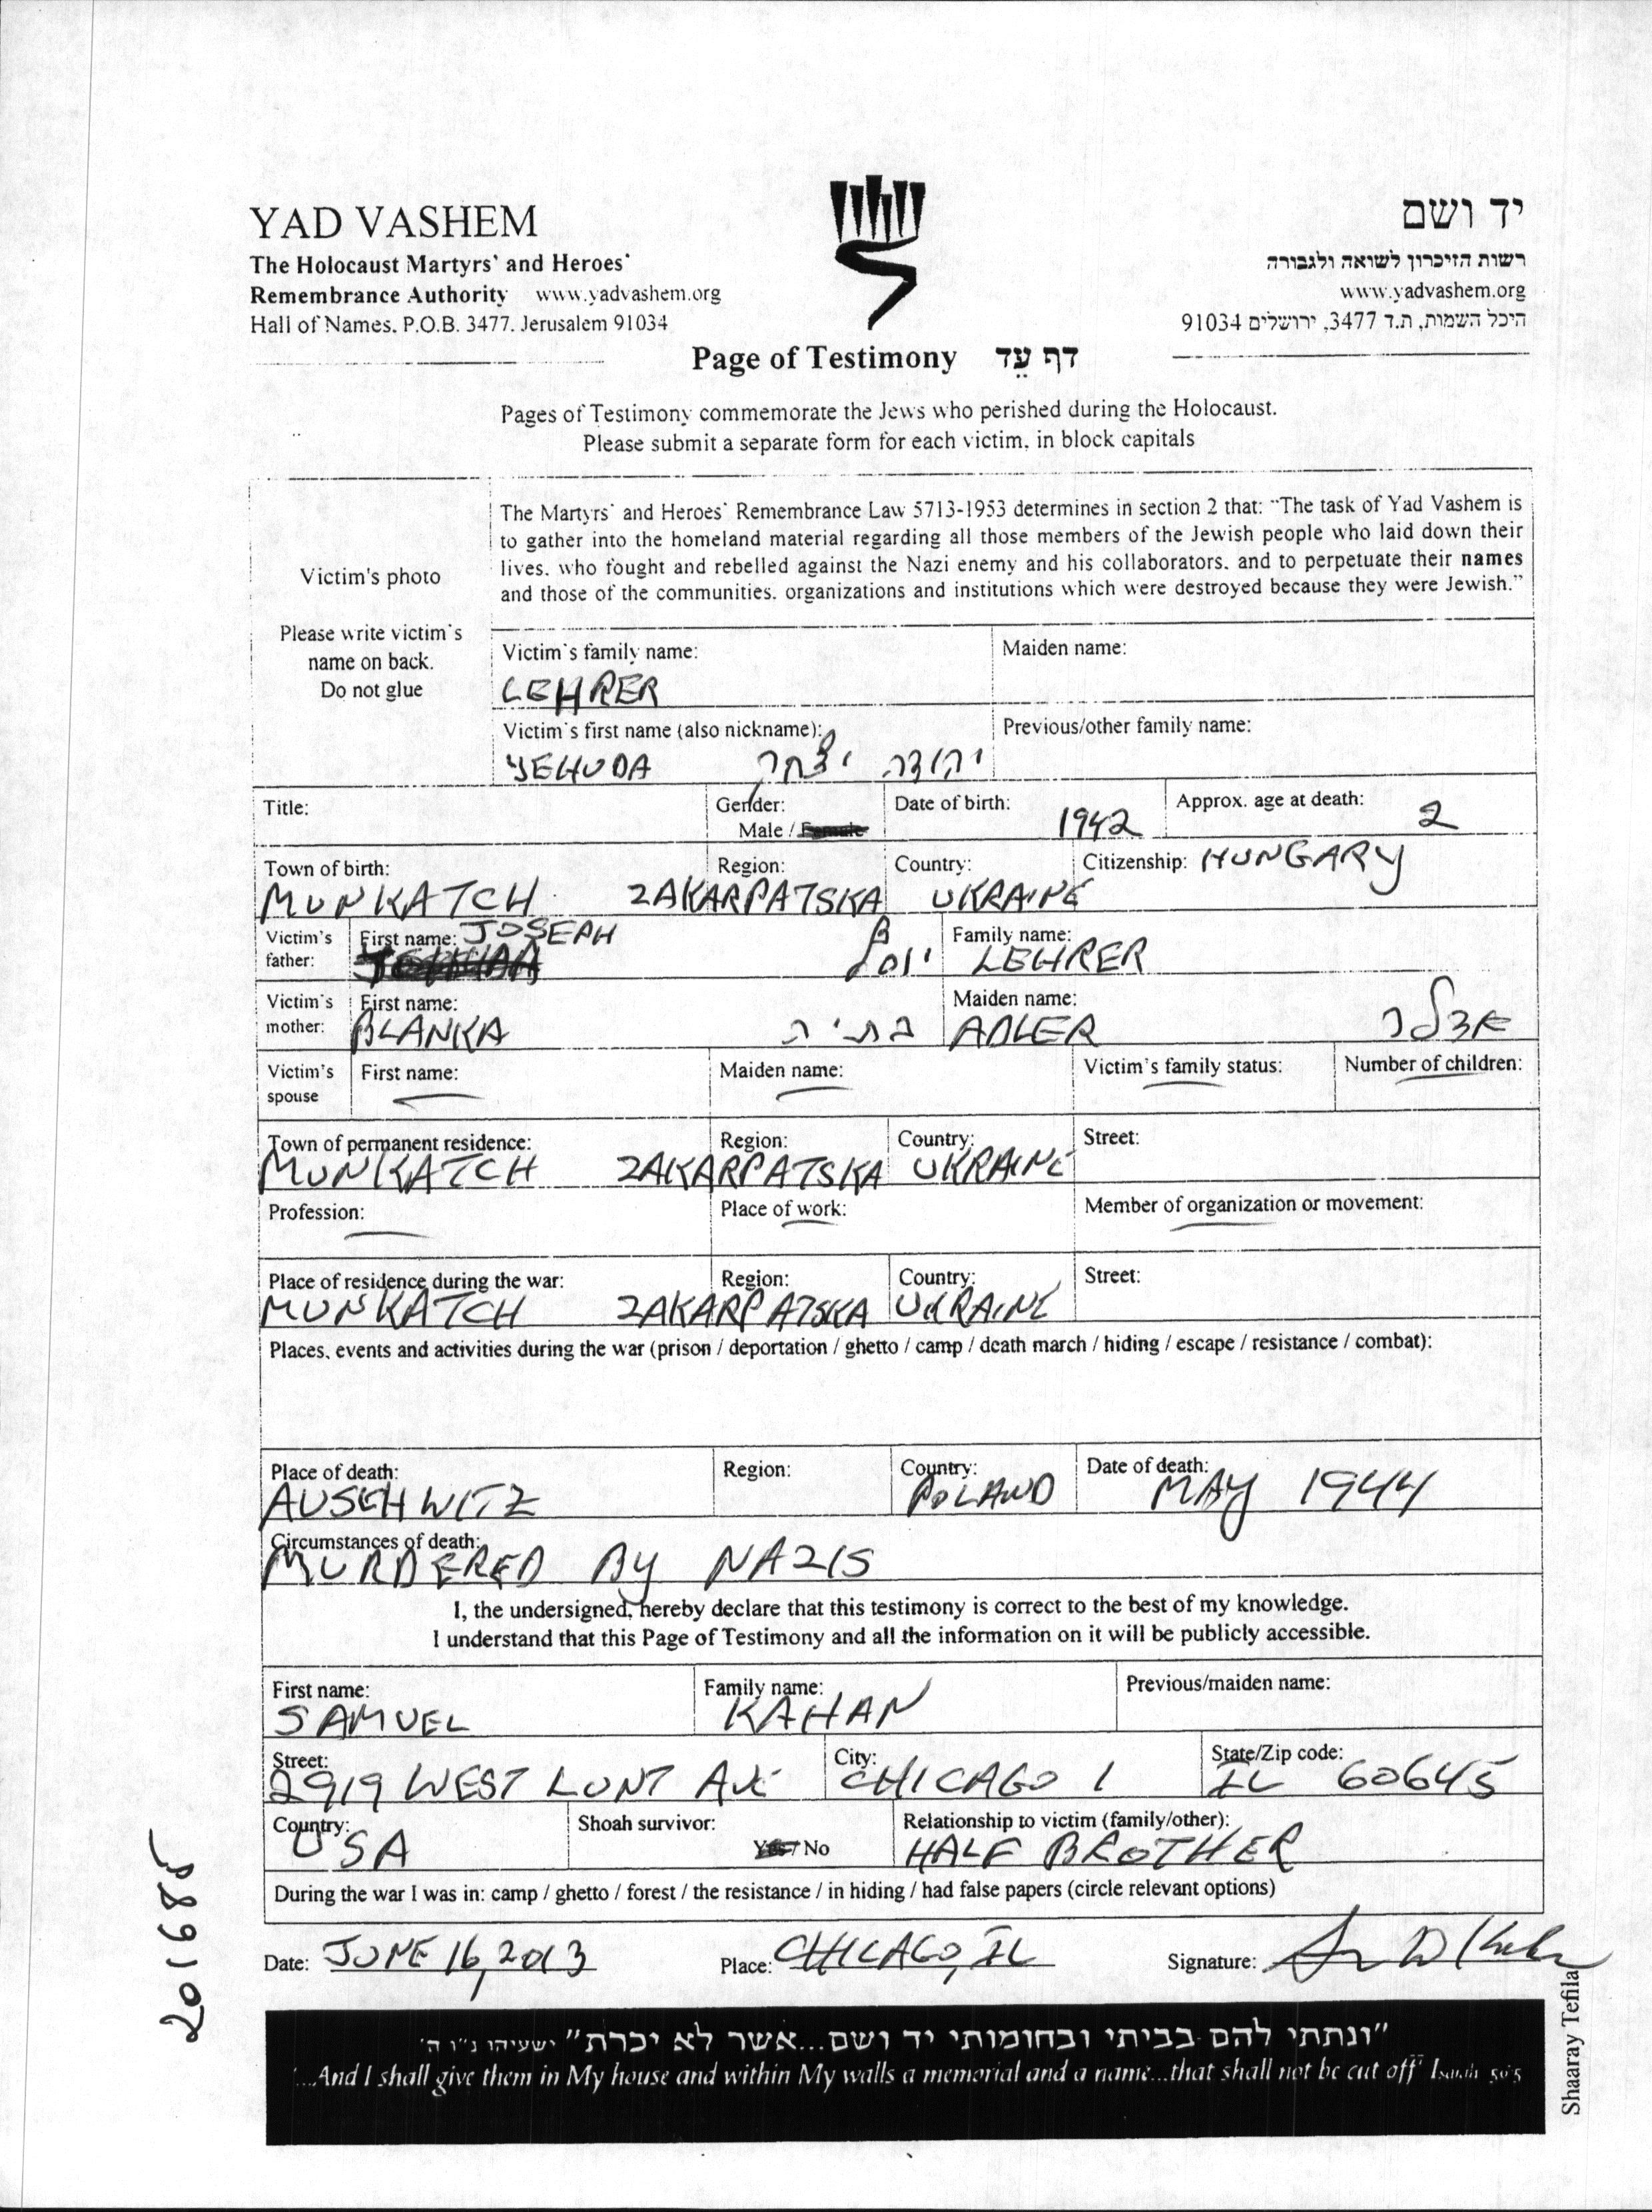 YAD VASHEM
The Holocaust Martyrs' and Heroes'
Remembrance Authority www.yadvashem.org
Hall of Names, P.O.B. 3477, Jerusalem 91034
יד ושם
רשות הזיכרון לשואה ולגבורה
www.yadvashem.org
היכל השמות, ת.ד 3477, ירושלים 91034
Page of Testimony דף עֵד
Pages of Testimony commemorate the Jews who perished during the Holocaust.
Please submit a separate form for each victim, in block capitals
Victim's photo
Please write victim's
name on back.
Do not glue
The Martyrs' and Heroes' Remembrance Law 5713-1953 determines in section 2 that: "The task of Yad Vashem is
to gather into the homeland material regarding all those members of the Jewish people who laid down their
lives, who fought and rebelled against the Nazi enemy and his collaborators, and to perpetuate their names
and those of the communities, organizations and institutions which were destroyed because they were Jewish."
Victim's family name: Maiden name:
LEHRER
Victim's first name (also nickname): Previous/other family name:
YEHUDA יהודה יצחק
Title: Gender: Date of birth: Approx. age at death:
Male / Female 1942 2
Town of birth: Region: Country: Citizenship: HUNGARY
MUNKATCH ZAKARPATSKA UKRAINE
Victim's father: First name: JOSEPH יוסף Family name: LEHRER
Victim's mother: First name: BLANKA בתיה Maiden name: ADLER אדלר
Victim's spouse First name: Maiden name: Victim's family status: Number of children:
Town of permanent residence: Region: Country: Street:
MUNKATCH ZAKARPATSKA UKRAINE
Profession: Place of work: Member of organization or movement:
Place of residence during the war: Region: Country: Street:
MUNKATCH ZAKARPATSKA UKRAINE
Places, events and activities during the war (prison / deportation / ghetto / camp / death march / hiding / escape / resistance / combat):
Place of death: Region: Country: Date of death:
AUSEHWITZ POLAND MAY 1944
Circumstances of death:
MURDERED By NAZIS
I, the undersigned, hereby declare that this testimony is correct to the best of my knowledge.
I understand that this Page of Testimony and all the information on it will be publicly accessible.
First name: Family name: Previous/maiden name:
SAMUEL KAHAN
Street: City: State/Zip code:
2919 WEST LUNT AVE CHICAGO IL 60645
Country: Shoah survivor: Relationship to victim (family/other):
USA Yes / No HALF BROTHER
During the war I was in: camp / ghetto / forest / the resistance / in hiding / had false papers (circle relevant options)
Date: JUNE 16, 2013 Place: CHICAGO, IL Signature:
"ונתתי להם בביתי ובחומותי יד ושם...אשר לא יכרת" ישעיהו נ"ו ה'
'...And I shall give them in My house and within My walls a memorial and a name...that shall not be cut off' Isaiah 56:5
Shaaray Tefila